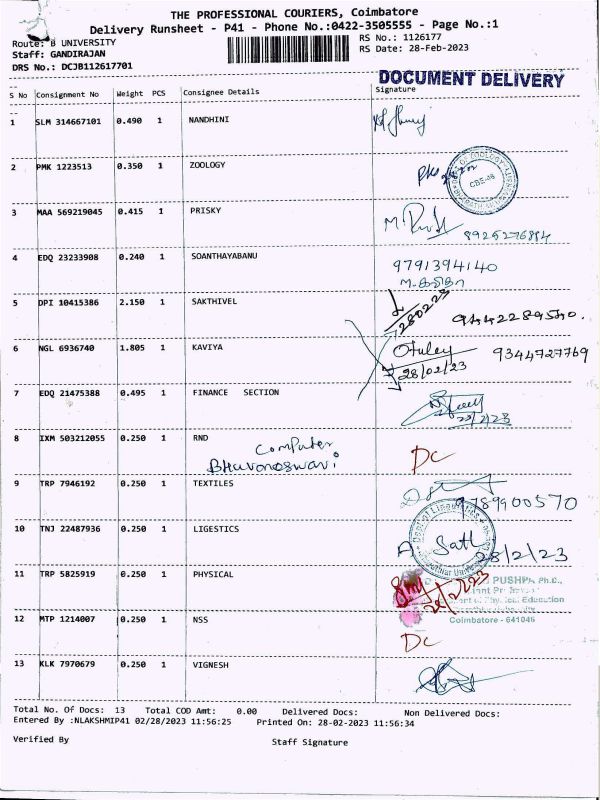 THE PROFESSIONAL COURIERS, Coimbatore
Delivery Runsheet - P41 - Phone No.:0422-3505555 - Page No.:1
Route: B UNIVERSITY
RS No.: 1126177
Staff: GANDIRAJAN
RS Date: 28-Feb-2023
DRS No.: DCJB112617701
DOCUMENT DELIVERY
S No Consignment No Weight PCS Consignee Details Signature
1 SLM 314667101 0.490 1 NANDHINI
2 PMK 1223513 0.350 1 ZOOLOGY
3 MAA 569219045 0.415 1 PRISKY
4 EDQ 23233908 0.240 1 SOANTHAYABANU 9791394140
5 DPI 10415386 2.150 1 SAKTHIVEL 280223
6 NGL 6936740 1.805 1 KAVIYA 9344727769
28/02/23
7 EDQ 21475388 0.495 1 FINANCE SECTION
8 IXM 503212055 0.250 1 RND Computer DC
Bhuvaneswari
9 TRP 7946192 0.250 1 TEXTILES
10 TNJ 22487936 0.250 1 LIGESTICS 28/2/23
11 TRP 5825919 0.250 1 PHYSICAL PUSHPA Ph.D.,
Physical Education
12 MTP 1214007 0.250 1 NSS Coimbatore - 641046
DC
13 KLK 7970679 0.250 1 VIGNESH
Total No. Of Docs: 13 Total COD Amt: 0.00 Delivered Docs: Non Delivered Docs:
Entered By :NLAKSHMIP41 02/28/2023 11:56:25 Printed On: 28-02-2023 11:56:34
Verified By Staff Signature